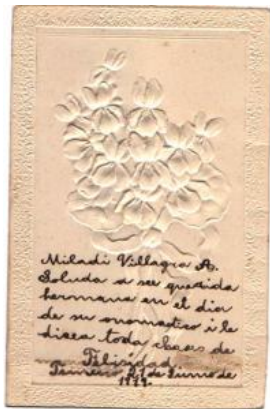 Miladi Villagra A.
Saluda a su querida
hermana en el dia
de su onomastico i le
disea toda clases de
Felisidad
21 de Junio de